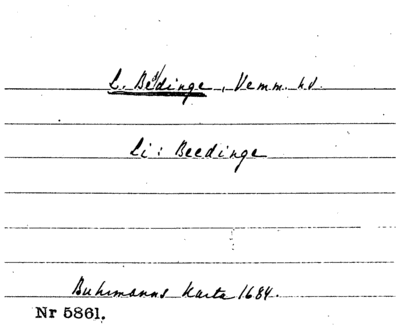 L. Beddinge, Vemm. hd.
Li: Beedinge
Buhrmanns Karta 1684.
Nr 5861.